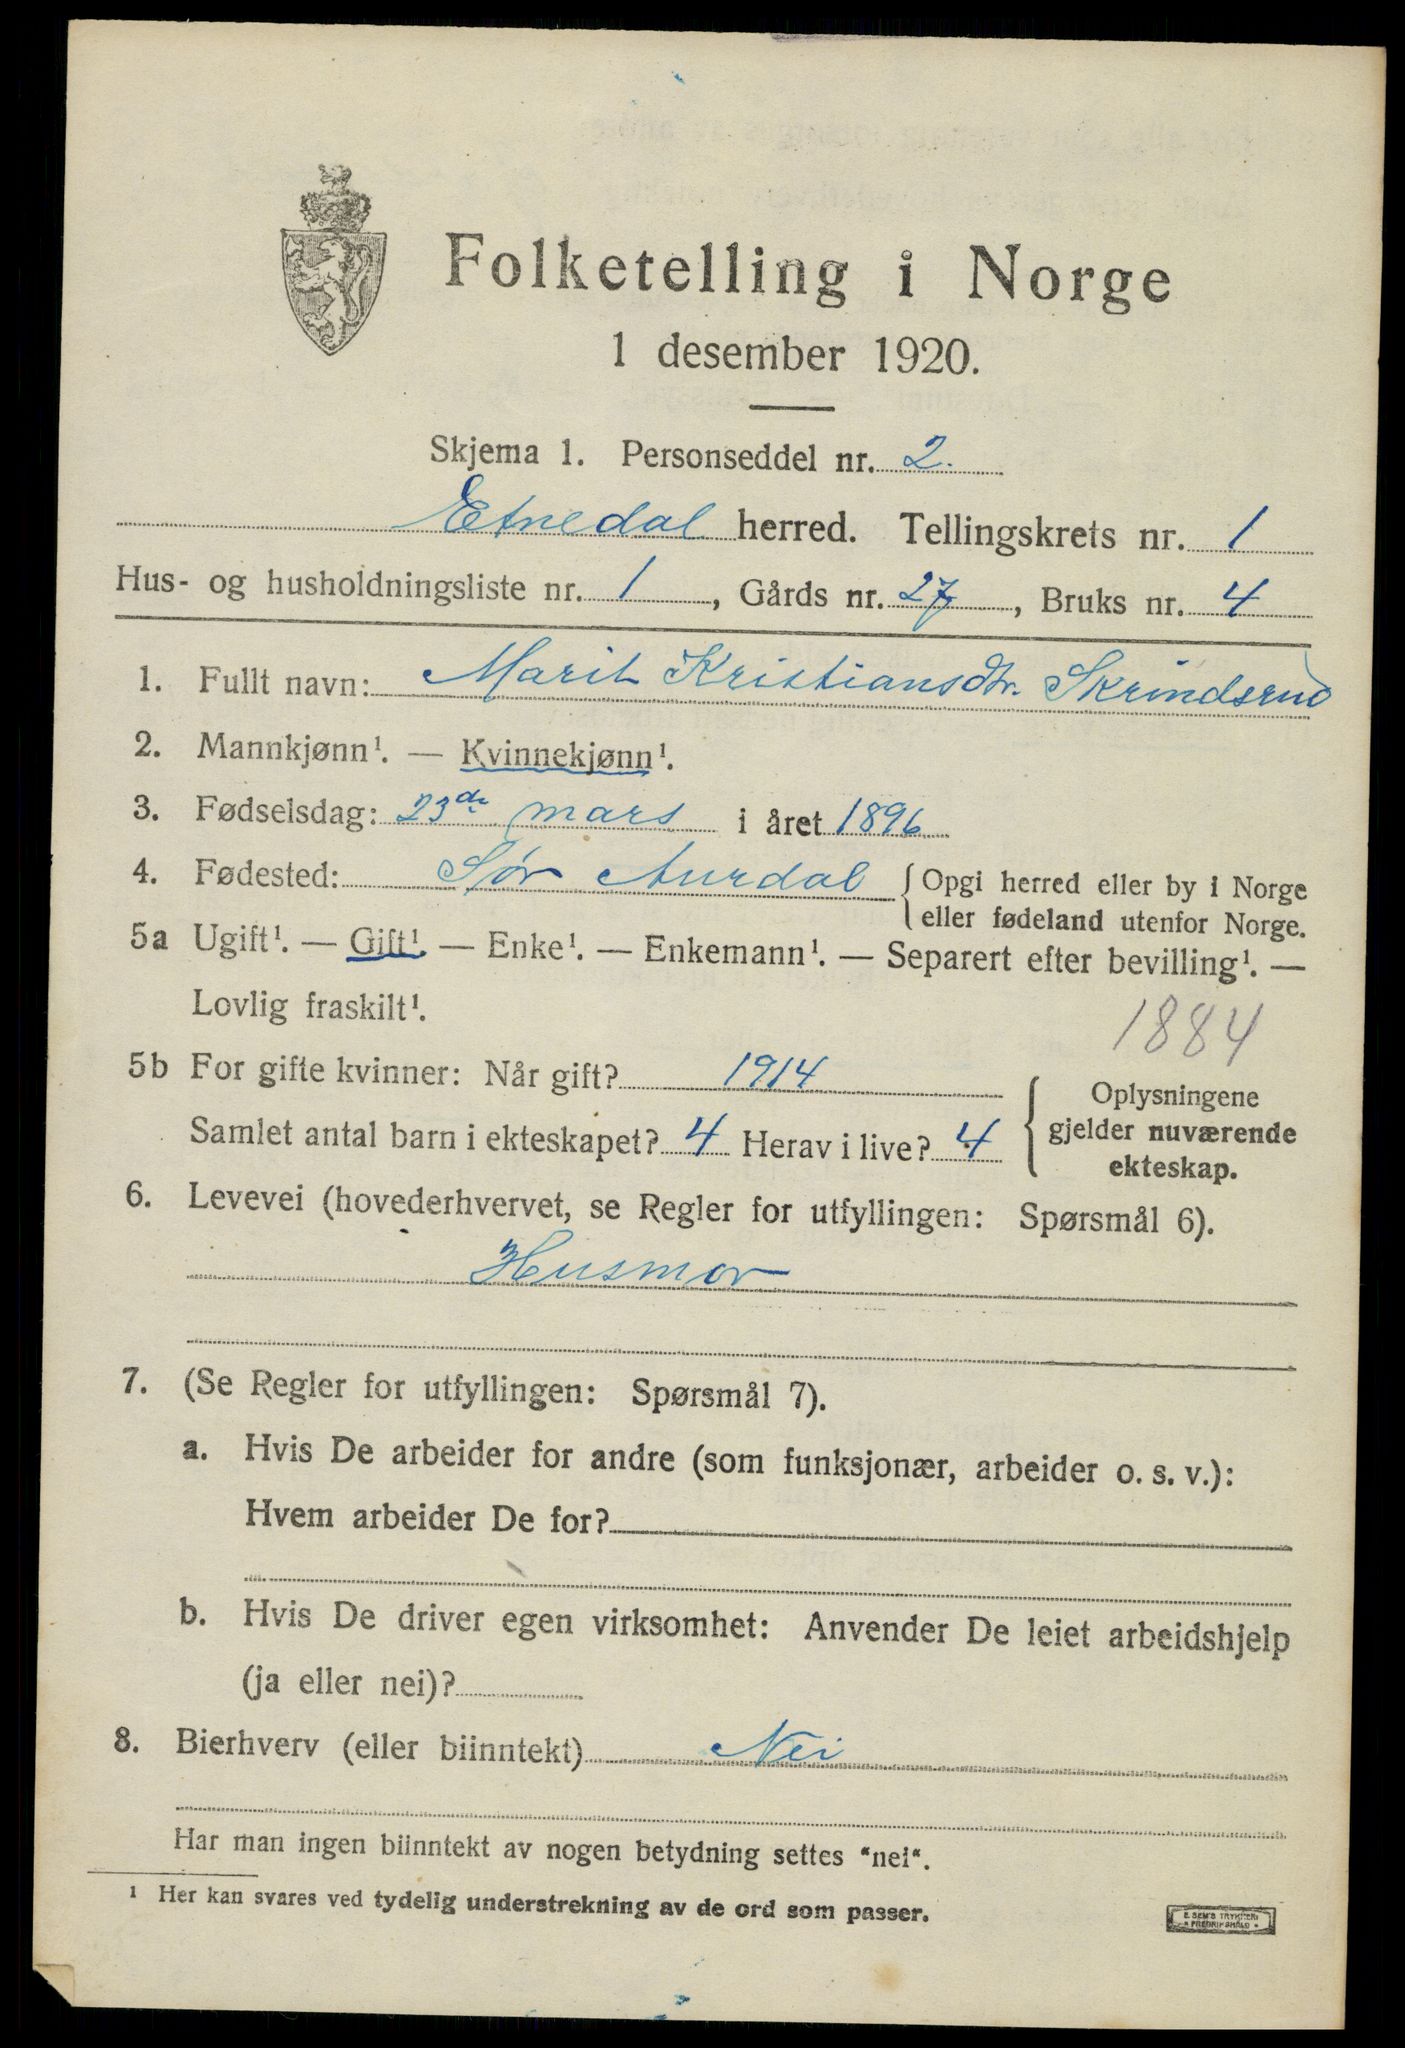 Folketelling i Norge
1 desember 1920.
Skjema 1. Personseddel nr. 2.
Etnedal herred. Tellingskrets nr. 1
Hus- og husholdningsliste nr. 1, Gårds nr. 27, Bruks nr. 4
1. Fullt navn: Marit Kristiansdtr. Skrindsrud
2. Mannkjønn¹. — Kvinnekjønn¹.
3. Fødselsdag: 23de mars i året 1896
4. Fødested: Sør Aurdal { Opgi herred eller by i Norge
eller fødeland utenfor Norge.
5a Ugift¹. — Gift¹. — Enke¹. — Enkemann¹. — Separert efter bevilling¹. —
Lovlig fraskilt¹.
1884
5b For gifte kvinner: Når gift? 1914
Samlet antal barn i ekteskapet? 4 Herav i live? 4
Oplysningene
gjelder nuværende
ekteskap.
6. Levevei (hovederhvervet, se Regler for utfyllingen: Spørsmål 6).
Husmor
7. (Se Regler for utfyllingen: Spørsmål 7).
a. Hvis De arbeider for andre (som funksjonær, arbeider o. s. v.):
Hvem arbeider De for?
b. Hvis De driver egen virksomhet: Anvender De leiet arbeidshjelp
(ja eller nei)?
8. Bierhverv (eller biinntekt) Nei
Har man ingen biinntekt av nogen betydning settes "nei".
¹ Her kan svares ved tydelig understrekning av de ord som passer.
E. SEM'S TRYKKERI
FREDRIKSHALD